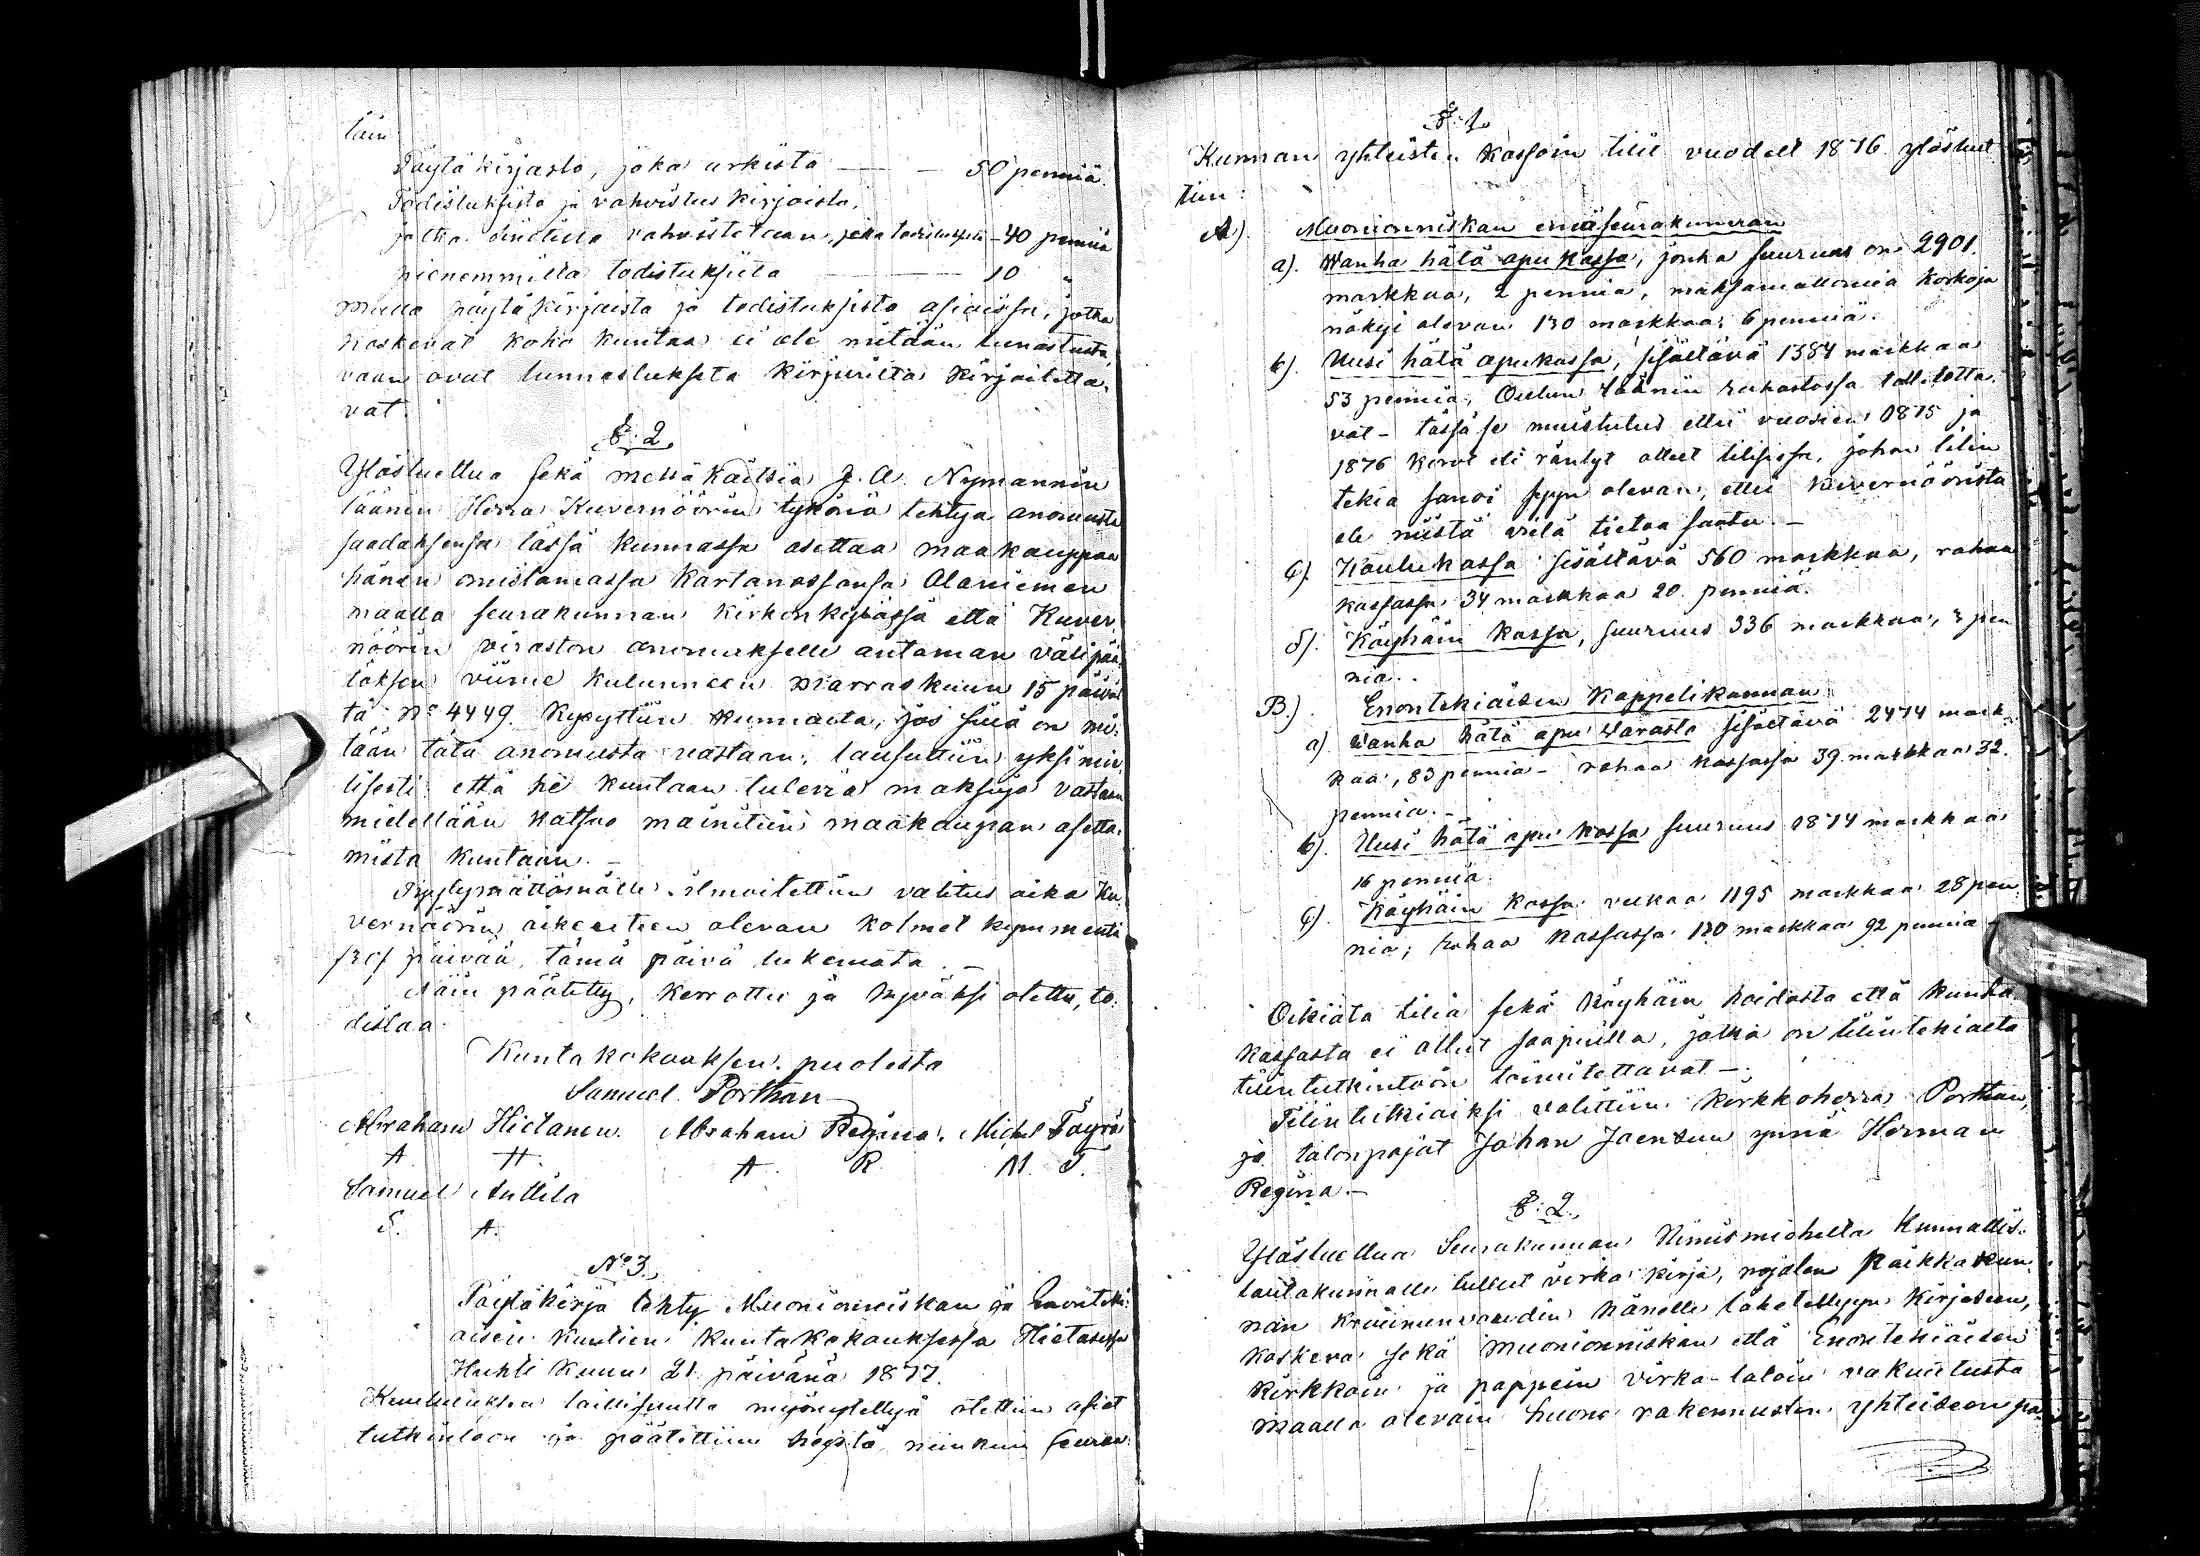 täin
Pöytäkirjasto, joka arkista — — 50 penniä.
Todistuksista ja vahvistus kirjoista,
jotka sinetillä vahvistetaan, joka todistuksesta - 40 penniä
pienemmillä todistuksilla — 10 "
Mutta pöytäkirjoista ja todistuksista asioissa, jotka
koskevat koko kuntaa ei ole mitään lunastusta,
vaan ovat lunnastukseta kirjurilta kirjoitetta-
vat.
§: 2.
Ylösluettua sekä metsäkäitsiä J. A. Nymannin
läänin Herra Kuvernöörin tykönä tehtyä anomusta
saadaksensa tässä kunnassa asettaa maakauppaa
hänen omistamassa kartanossansa Alaniemen
maalla seurakunnan kirkonkylässä että Kuver-
nöörin viraston anomukselle antaman välipää-
töksen viime kulunneen Marraskuun 15 päivä-
tä No 4449. Kysyttiin kunnalta, jos sillä on mi-
tään tätä anomusta vastaan; lausuttiin yksimie-
lisesti että he kuntaan tulevia maksuja vastaan
mielellään katsoo mainitun maakaupan asetta-
mista kuntaan. —
Tyytymättömälle ilmoitettiin valitus aika Ku-
vernöörin oikeuteen olevan kolmet kymmentä
/30/ päivää, tämä päivä lukemata. —
Näin päätetty, kerrottu ja hyväksi otettu, to-
distaa.
Kuntakokouksen puolesta
Samuel Porthan
Abraham Hietanen. Abraham Regina. Michel Täyrä
A H. A. R. M. T.
Samuel Anttila
S. A.
No 3.
Pöytäkirja tehty Muonionniskan ja Enonteki-
äisen kuntien kuntakokouksessa Hietasessa
Huhti kuun 21 päivänä 1877.
Kuulutuksen laillisuutta myönnyteltyä otettiin asiat
tutkintoon ja päätettiin niistä niinkuin seuraa:
§: 1.
Kunnan yhteisten kassoin tilit vuodelt 1876 ylösluet-
tiin:
A). Muonionniskan emäseurakunnan
a). Wanha hätä apu kassa, jonka suuruus on 2901.
markkaa, 2 penniä, maksamattomia korkoja
näkyi olevan 130 markkaa, 6 penniä.
b). Uusi hätä apukassa, sisältävä 1384 markkaa
53 penniä, Oulun läänin rahastossa talletetta-
vat - tässä se muistutus ettei vuosien 1875 ja
1876 korot eli räntyt olleet tilissä, johon tilin
tekiä sanoi syyn olevan, ettei kuvernööristä
ole niistä vielä tietoa saatu. —
c). Koulukassa sisältävä 560 markkaa, rahaa
kassassa 34 markkaa 20 penniä.
d). Köyhäin kassa, suuruus 336 markkaa, 3 pen-
niä.
B.). Enontekiäisen Kappelikunnan
a) Wanha hätä apu Varasto sisältävä 2474 mark-
kaa, 83 penniä - rahaa kassassa 39 markkaa 32.
penniä. —
b). Uusi hätä apu kassa suuruus 1874 markkaa
16 penniä.
c). Köyhäin kassa velkaa 1195 markkaa 28 pen-
niä; rahaa kassassa 120 markkaa 92 penniä
Oikiata tiliä sekä köyhäin hoidosta että kunta-
kassasta ei ollut saapuilla, jotka on tilintekiältä
tilintutkintoon toimitettavat —.
Tilintutkiaiksi valittiin kirkkoherra Porthan,
ja talonpojat Johan Jaensuu ynnä Herman
Regina. —
§: 2.
Ylösluettua Seurakunnan Nimismieheltä Kunnallis-
lautakunnalle tullut virka kirja, nojaten Paikkakun-
nan kruununvoudin hänelle lähetettyyn kirjeseen,
koskeva sekä Muonionniskan että Enontekiäisen
kirkkoin ja pappein virka-taloin vakuutusta
maalla olevain huone rakennusten yhteiseen pa-